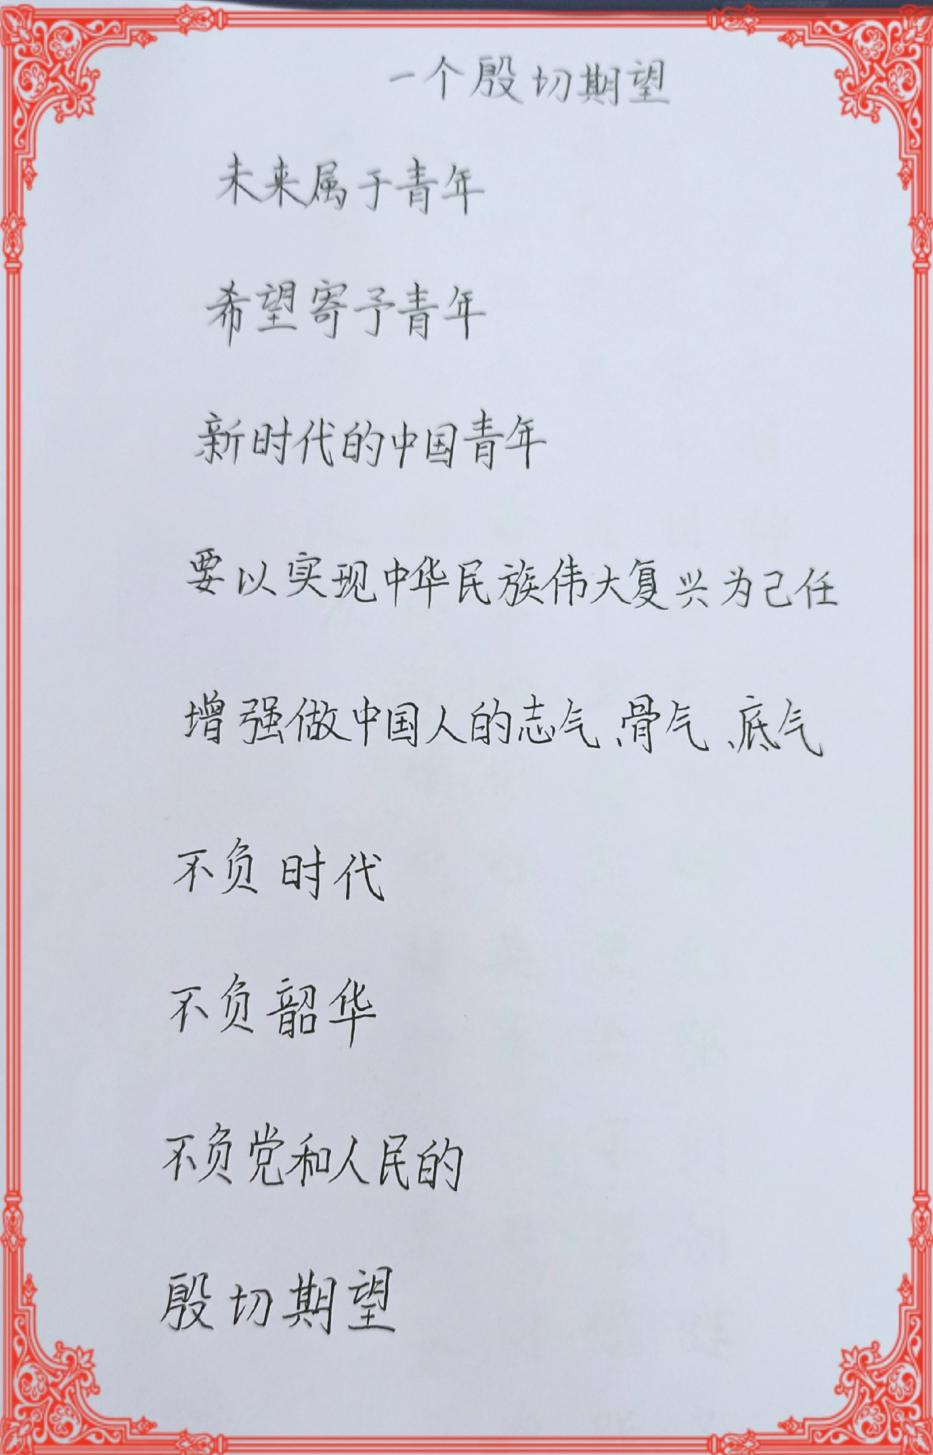 一个殷切期望
未来属于青年
希望寄予青年
新时代的中国青年
要以实现中华民族伟大复兴为己任
增强做中国人的志气、骨气、底气
不负时代
不负韶华
不负党和人民的
殷切期望